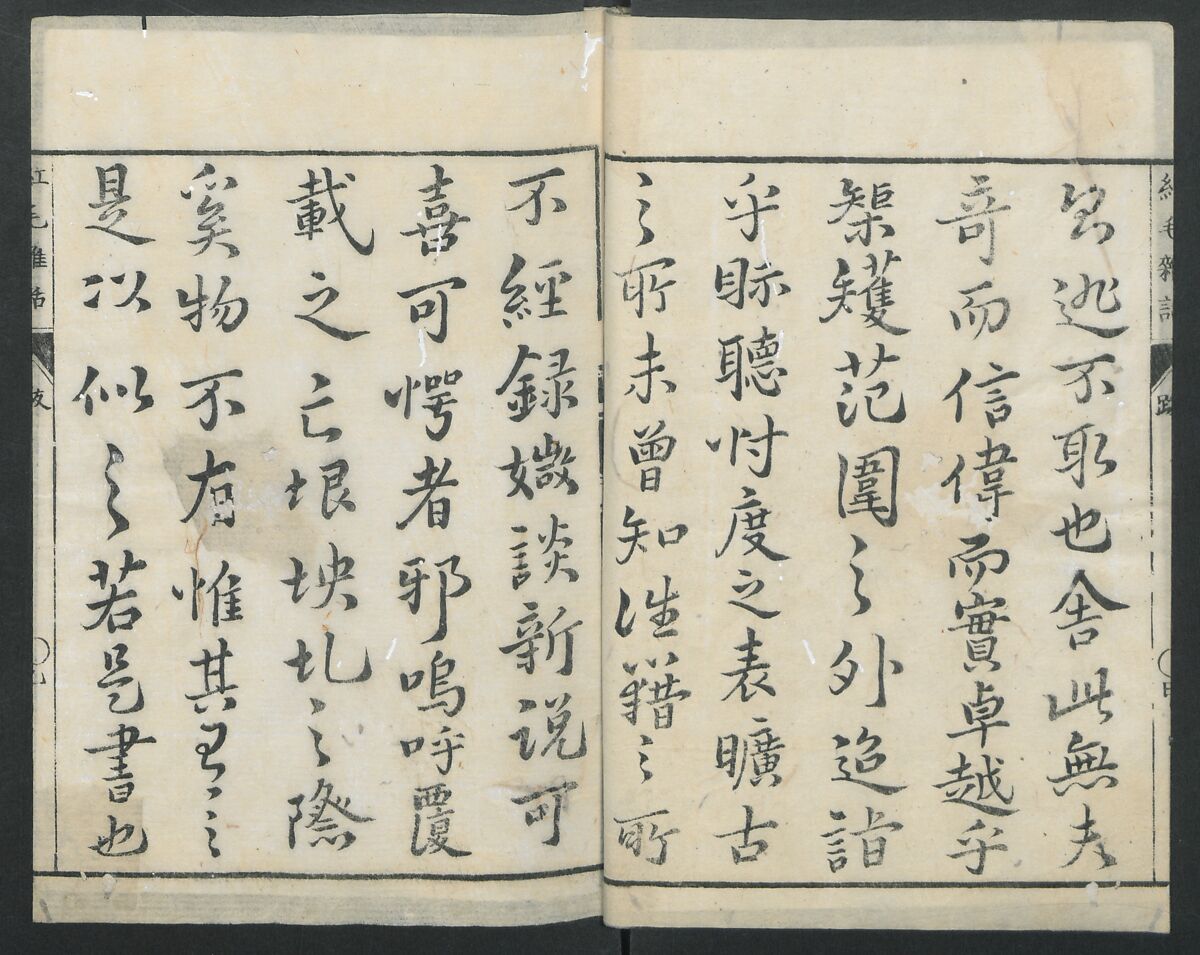 紅毛雜話 跋
逃不取也舍此無夫
奇而信偉而實卓越乎
榘矱范圍之外迨詣
乎眎聽忖度之表曠古
之所未曾知往籍之所
不經録媺談新説可
喜可愕者邪嗚呼覆
載之亡垠坱圠之際
奚物不有惟其有之
是以似之若是書也
紅毛雜話 跋